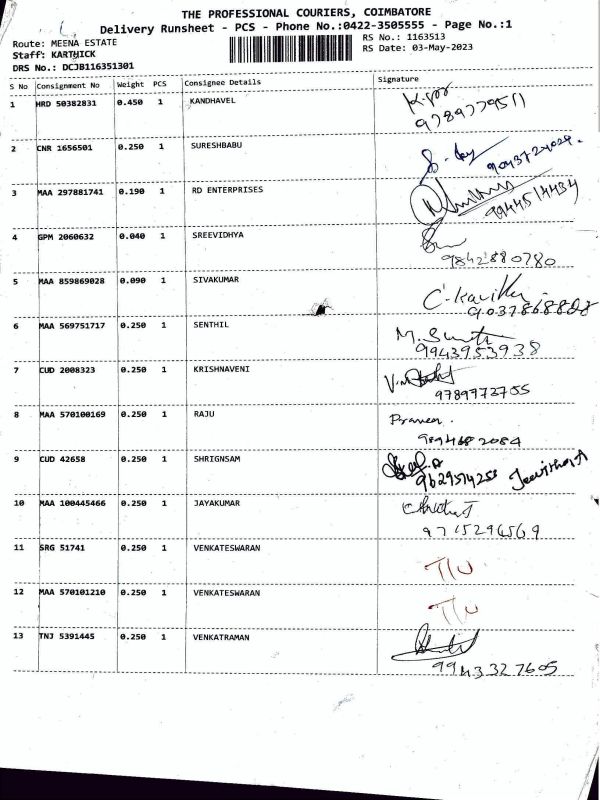 THE PROFESSIONAL COURIERS, COIMBATORE
Delivery Runsheet - PCS - Phone No.:0422-3505555 - Page No.:1
Route: MEENA ESTATE
RS No.: 1163513
Staff: KARTHICK
RS Date: 03-May-2023
DRS No.: DCJB116351301
S No Consignment No Weight PCS Consignee Details Signature
1 HRD 50382831 0.450 1 KANDHAVEL
9789779511
2 CNR 1656501 0.250 1 SURESHBABU
3 MAA 297881741 0.190 1 RD ENTERPRISES
9944514434
4 GPM 2060632 0.040 1 SREEVIDHYA
9842880780
5 MAA 859869028 0.090 1 SIVAKUMAR
6 MAA 569751717 0.250 1 SENTHIL
9943953938
7 CUD 2008323 0.250 1 KRISHNAVENI
9789773755
8 MAA 570100169 0.250 1 RAJU
Praveen.
9894682084
9 CUD 42658 0.250 1 SHRIGNSAM
10 MAA 100445466 0.250 1 JAYAKUMAR
9715296569
11 SRG 51741 0.250 1 VENKATESWARAN
12 MAA 570101210 0.250 1 VENKATESWARAN
13 TNJ 5391445 0.250 1 VENKATRAMAN
9943327605